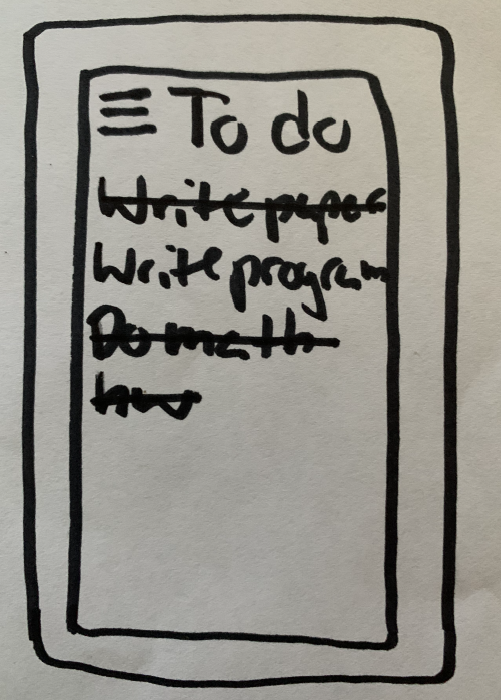 To do
Write paper
Write program
Do math
hw